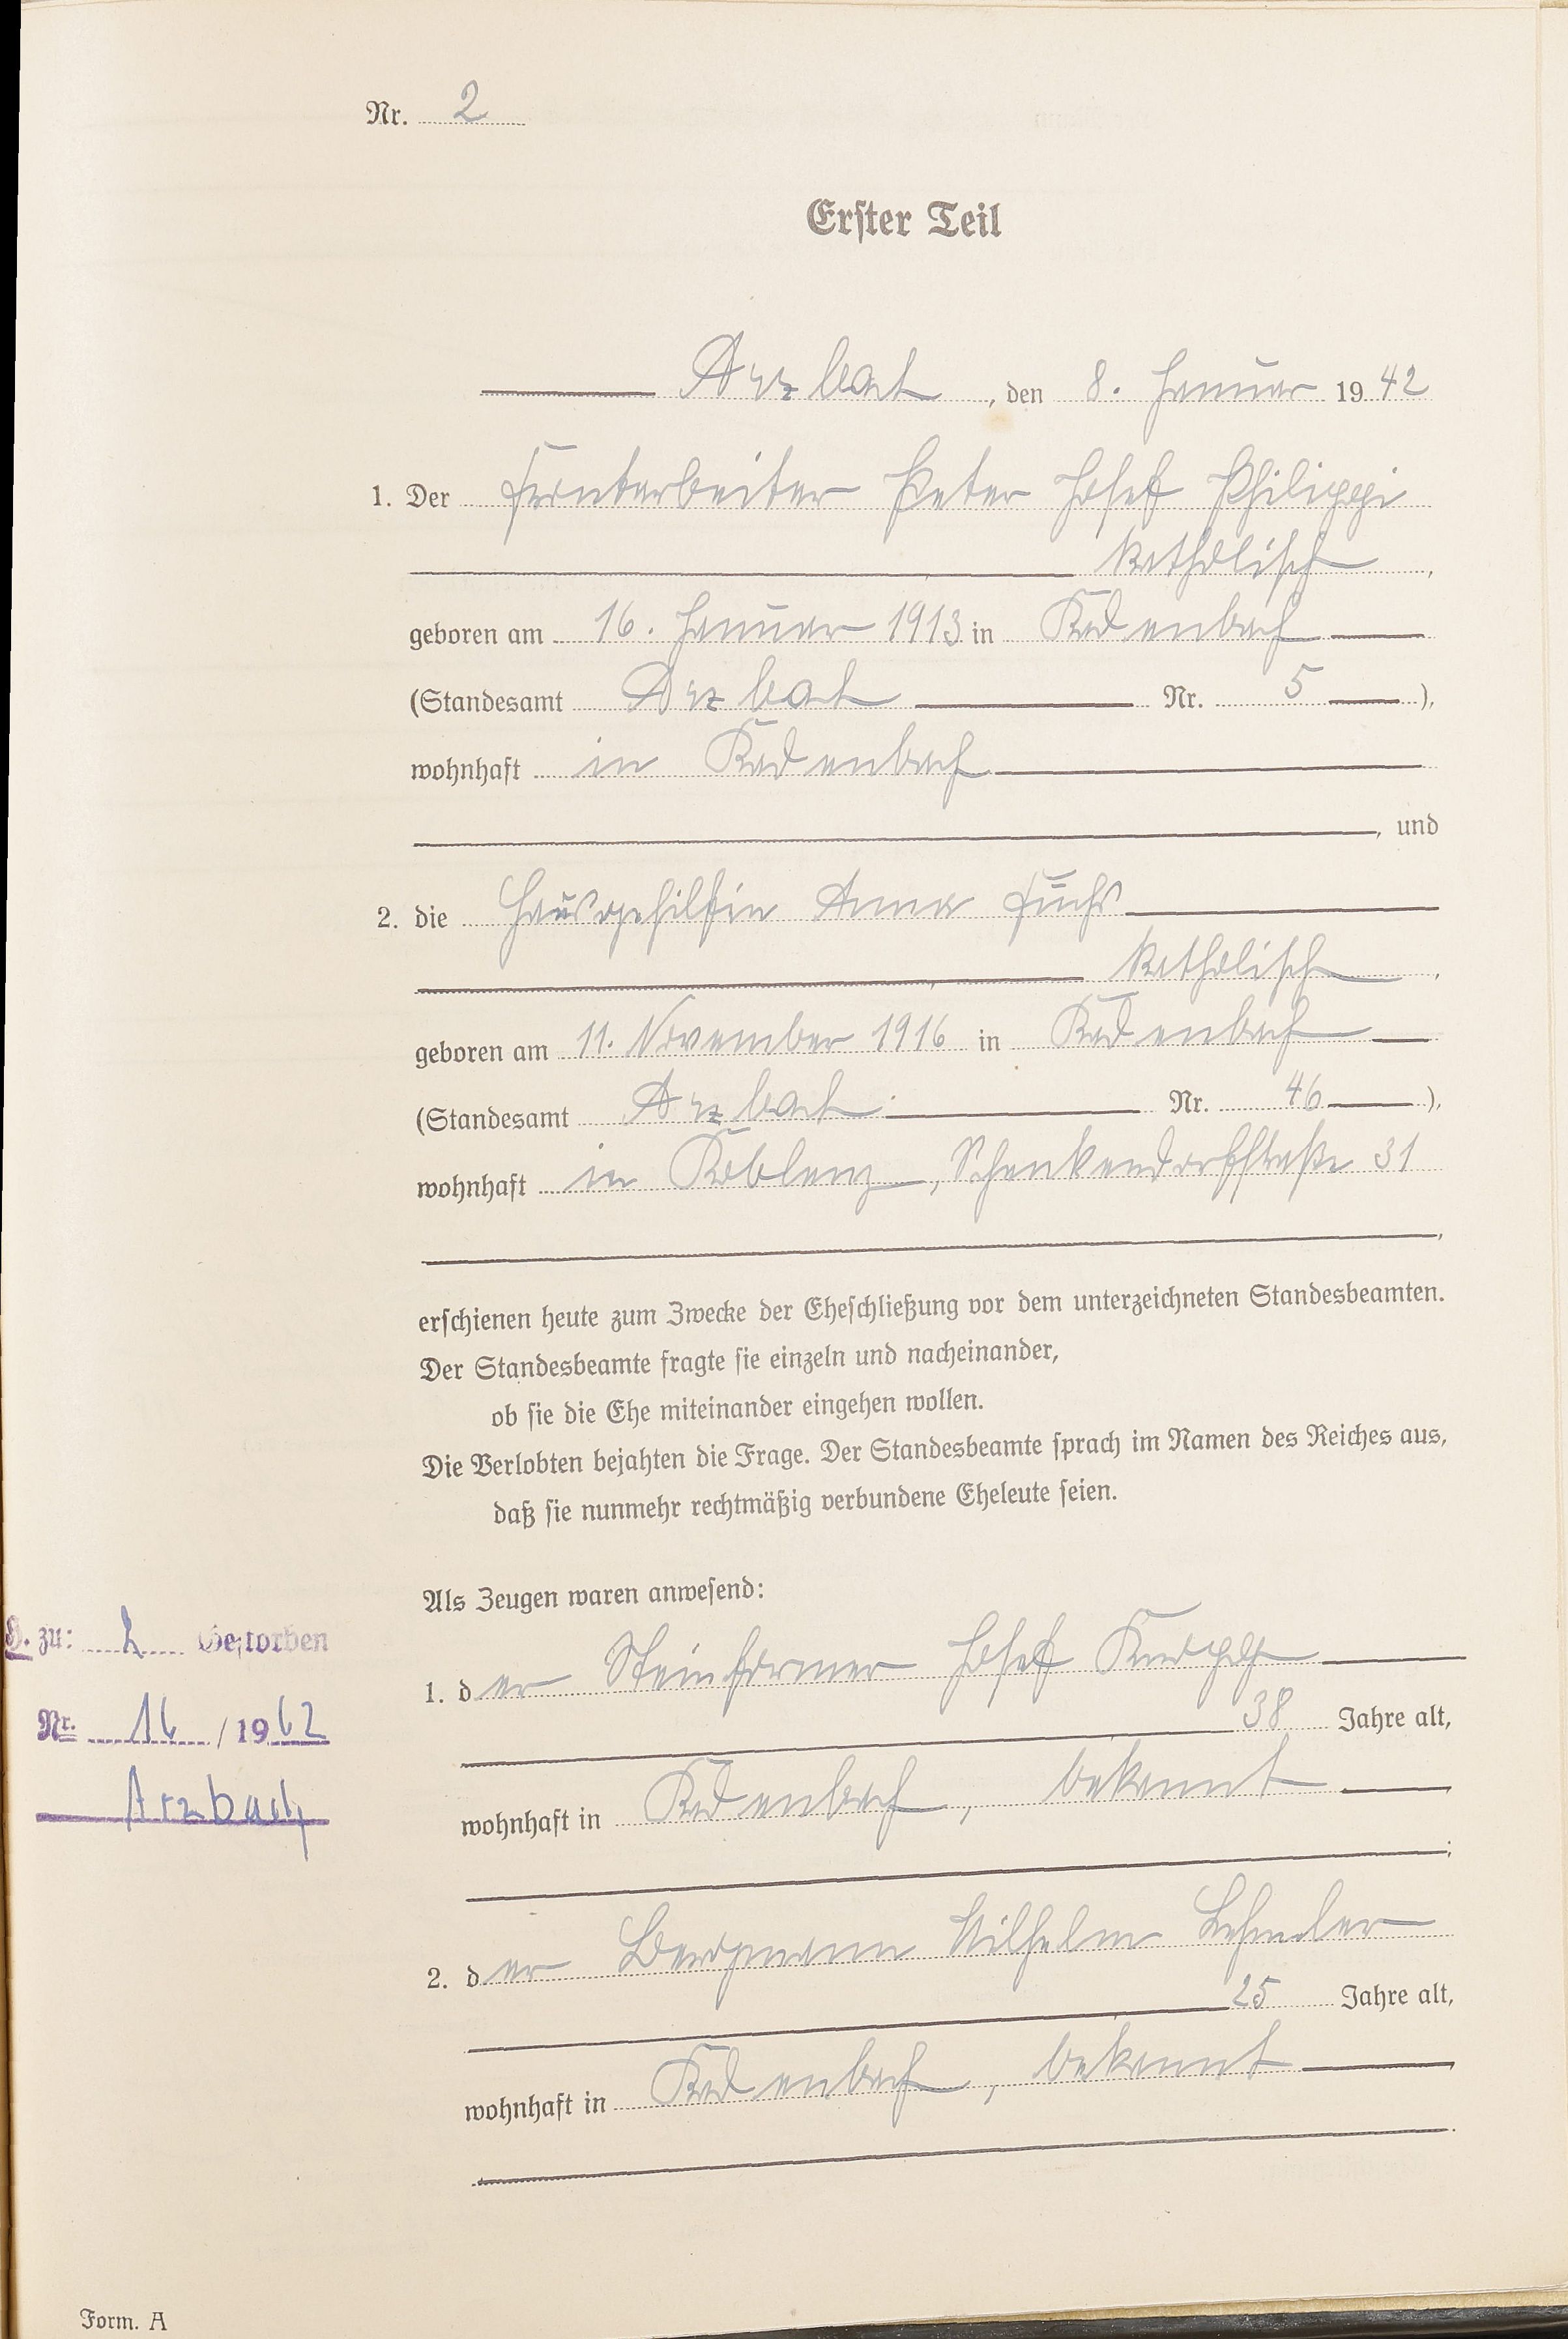 Nr. 2
Erster Teil
Arzbach, den 8. Januar 1942
1. Der Frontarbeiter Peter Josef Philippi
katholisch,
geboren am 16. Januar 1913 in Kadenbach
(Standesamt Arzbach Nr. 5),
wohnhaft in Kadenbach
, und
2. die Hausgehilfin Anna Fuchs
katholisch,
geboren am 11. November 1916 in Kadenbach
(Standesamt Arzbach Nr. 46),
wohnhaft in Koblenz, Schenkendorfstraße 31
,
erschienen heute zum Zwecke der Eheschließung vor dem unterzeichneten Standesbeamten.
Der Standesbeamte fragte sie einzeln und nacheinander,
ob sie die Ehe miteinander eingehen wollen.
Die Verlobten bejahten die Frage. Der Standesbeamte sprach im Namen des Reiches aus,
daß sie nunmehr rechtmäßig verbundene Eheleute seien.
Als Zeugen waren anwesend:
1. der Steinformer Josef Knopp
38 Jahre alt,
wohnhaft in Kadenbach, bekannt
;
2. der Bergmann Wilhelm
25 Jahre alt,
wohnhaft in Kadenbach, bekannt
.
H. zu: 2 Gestorben
Nr. 16 / 1962
Arzbach
Form. A